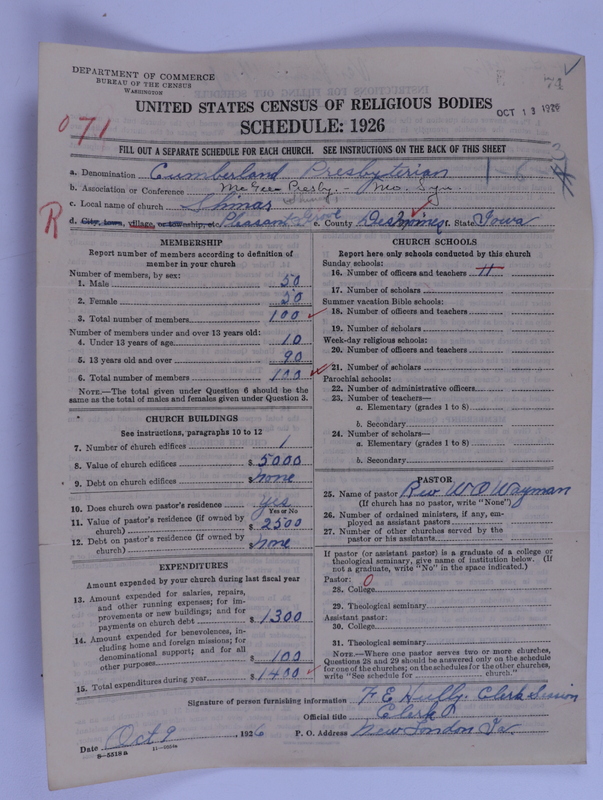 DEPARTMENT OF COMMERCE
BUREAU OF THE CENSUS
WASHINGTON
74
UNITED STATES CENSUS OF RELIGIOUS BODIES
OCT 13 1926
SCHEDULE: 1926
071
FILL OUT A SEPARATE SCHEDULE FOR EACH CHURCH. SEE INSTRUCTIONS ON THE BACK OF THIS SHEET
a. Denomination Cumberland Presbyterian 1-6
b. Association or Conference McGee Presby. - Mo. Syn.
c. Local name of church Shinar
R
d. City, town, village, or township, etc. Pleasant Grove e. County Des Moines f. State Iowa
MEMBERSHIP
Report number of members according to definition of
member in your church
Number of members, by sex:
1. Male 50
2. Female 50
3. Total number of members 100
Number of members under and over 13 years old:
4. Under 13 years of age 10
5. 13 years old and over 90
6. Total number of members 100
NOTE.—The total given under Question 6 should be the
same as the total of males and females given under Question 3.
CHURCH BUILDINGS
See instructions, paragraphs 10 to 12
7. Number of church edifices 1
8. Value of church edifices $ 5000
9. Debt on church edifices $ none
10. Does church own pastor's residence? yes
Yes or No
11. Value of pastor's residence (if owned by
church) $ 2500
12. Debt on pastor's residence (if owned by
church) $ none
EXPENDITURES
Amount expended by your church during last fiscal year
13. Amount expended for salaries, repairs,
and other running expenses; for im-
provements or new buildings; and for
payments on church debt $ 1300
14. Amount expended for benevolences, in-
cluding home and foreign missions; for
denominational support; and for all
other purposes $ 100
15. Total expenditures during year $ 1400
CHURCH SCHOOLS
Report here only schools conducted by this church
Sunday schools:
16. Number of officers and teachers 11
17. Number of scholars
Summer vacation Bible schools:
18. Number of officers and teachers
19. Number of scholars
Week-day religious schools:
20. Number of officers and teachers
21. Number of scholars
Parochial schools:
22. Number of administrative officers
23. Number of teachers—
a. Elementary (grades 1 to 8)
b. Secondary
24. Number of scholars—
a. Elementary (grades 1 to 8)
b. Secondary
PASTOR
25. Name of pastor Rev W O Wayman
(If church has no pastor, write "None")
26. Number of ordained ministers, if any, em-
ployed as assistant pastors
27. Number of other churches served by the
pastor or his assistants
If pastor (or assistant pastor) is a graduate of a college or
theological seminary, give name of institution below. (If
not a graduate, write "No" in the space indicated.)
Pastor: 0
28. College
29. Theological seminary
Assistant pastor:
30. College
31. Theological seminary
NOTE.—Where one pastor serves two or more churches,
Questions 28 and 29 should be answered only on the schedule
for one of the churches; on the schedules for the other churches,
write "See schedule for church."
Signature of person furnishing information F E Hully. Clerk Session
Official title Clerk
Date Oct 9, 1926 P. O. Address New London Ia.
8-5518a